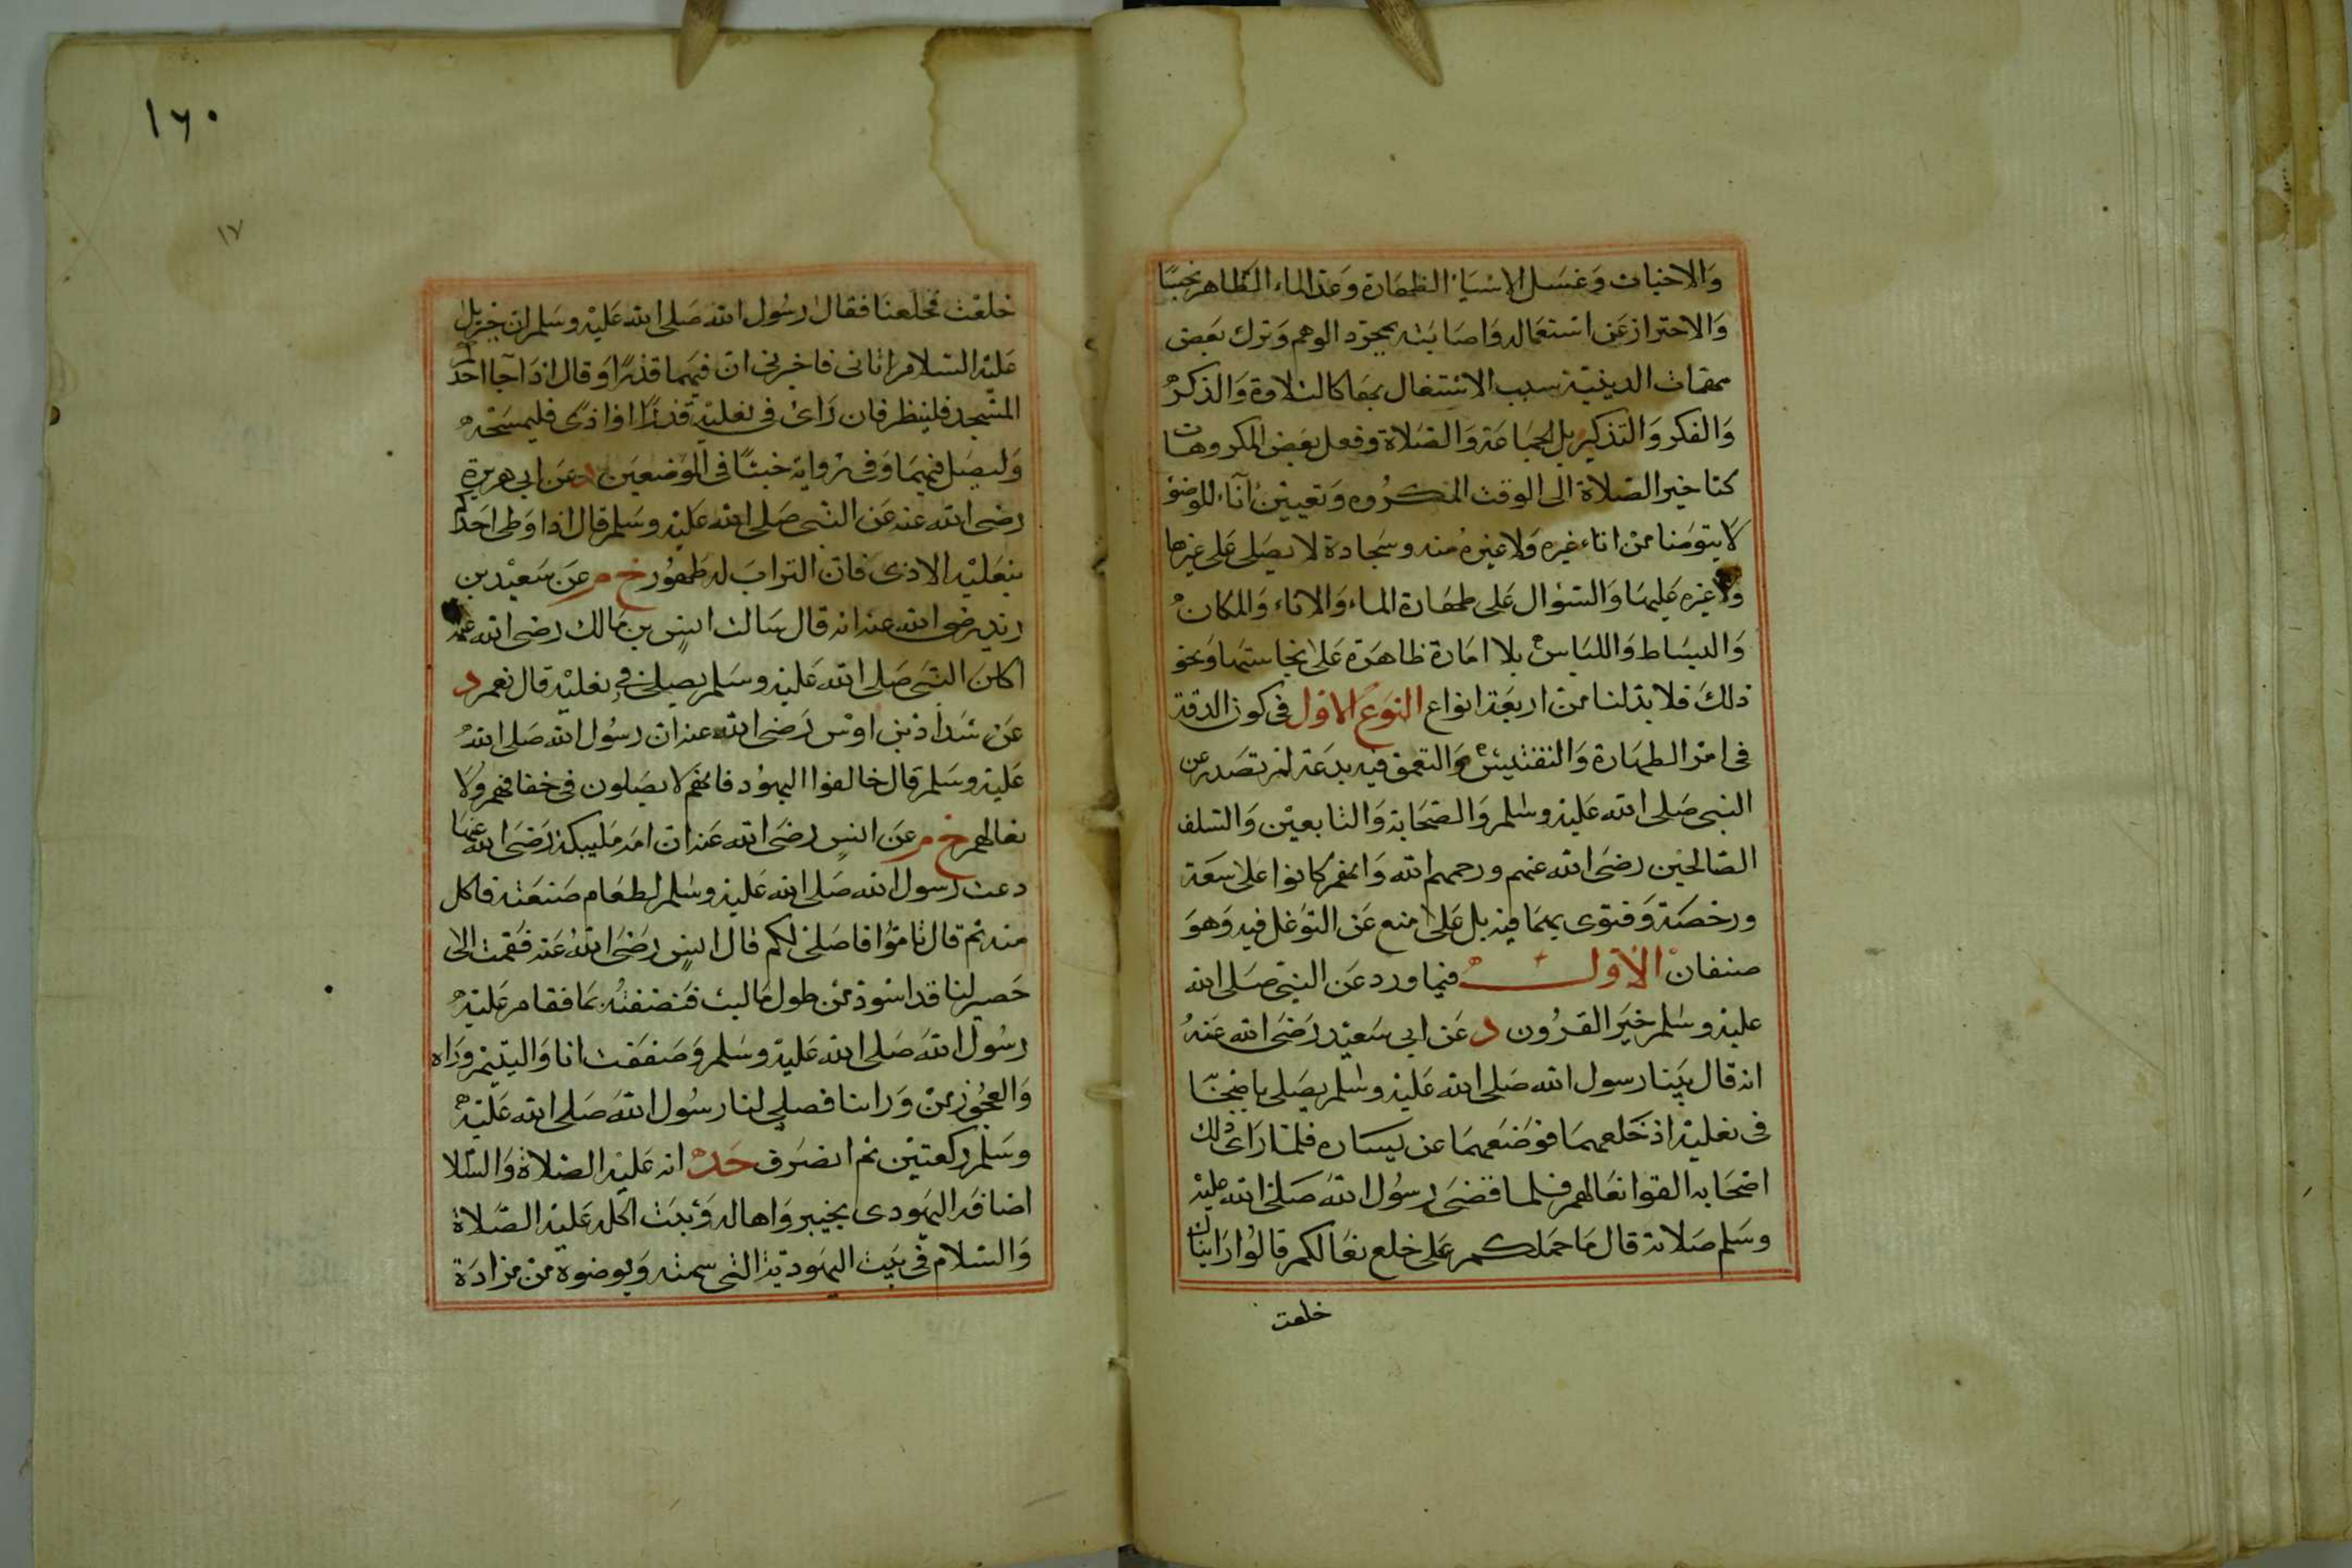 والاخباث وغسل الاشياء الطهارة وعد الماء الطاهر نجسا
والاحتراز عن استعماله واصابته بمجرد الوهم وترك بعض
مهمات الدينية سبب الاشتغال بها كالتلاوة والذكر
والفكر والتذكير بل الجماعة والصلاة وفعل بعض المكروهات
كتاخير الصلاة الى الوقت المكروه وتعيين آناء للوضو
لا يتوضا من اناء غيره ولا غيره منه وسجادة لا يصلى على غيرها
ولا غيره عليها والسؤال على طهارة الماء والاناء والمكان
والبساط واللباس بلا امارة ظاهرة على نجاستها ونحو
ذلك فلا بد لنا من اربعة انواع النوع الاول فى كون الدقة
فى امر الطهارة والتفتيش والتعمق فيه بدعة لم تصدر عن
النبى صلى الله عليه وسلم والصحابة والتابعين والسلف
الصالحين رضى الله عنهم ورحمهم الله وانهم كانوا على سعة
ورخصة وفتوى بهما فيه بل على منع عن التوغل فيه وهو
صنفان الاول فيما ورد عن النبى صلى الله
عليه وسلم خير القرون د عن ابى سعيد رضى الله عنه
انه قال بينا رسول الله صلى الله عليه وسلم يصلى باصحابه
فى نعليه اذ خلعهما فوضعهما عن يساره فلما راى ذلك
اصحابه القوا نعالهم فلما قضى رسول الله صلى الله عليه
وسلم صلاته قال ما حملكم على خلع نعالكم قالوا رايناك
خلعت
١٦٠
١٧
خلعت فخلعنا فقال رسول الله صلى الله عليه وسلم ان جبريل
عليه السلام اتانى فاخبرنى ان فيهما قذرا وقال اذا جا احدكم
المسجد فلينظر فان راى فى نعليه قذرا او اذى فليمسحه
وليصل فيهما وفى رواية خبثا فى الموضعين د عن ابى هريرة
رضى الله عنه عن النبى صلى الله عليه وسلم قال اذا وطى احدكم
بنعليه الاذى فان التراب له طهور خ م عن سعيد بن
زيد رضى الله عنه انه قال سالت انس بن مالك رضى الله عنه
اكان النبى صلى الله عليه وسلم يصلى فى نعليه قال نعم د
عن شداد بن اوس رضى الله عنه ان رسول الله صلى الله
عليه وسلم قال خالفوا اليهود فانهم لا يصلون فى خفافهم ولا
نعالهم خ م عن انس رضى الله عنه ان امه مليكة رضى الله عنها
دعت رسول الله صلى الله عليه وسلم لطعام صنعته فاكل
منه ثم قال قوموا فاصلى لكم قال انس رضى الله عنه فقمت الى
حصير لنا قد اسود من طول ما لبث فنضفته بما فقام عليه
رسول الله صلى الله عليه وسلم وصففت انا واليتيم وراه
والعجوز من وراىنا فصلى لنا رسول الله صلى الله عليه
وسلم ركعتين ثم انصرف حد انه عليه الصلاة والسلا
اضافه اليهودى بخيبر واهاله وثبت اكله عليه الصلاة
والسلام فى بيت اليهودية التى سمته وبوضوه من مزادة